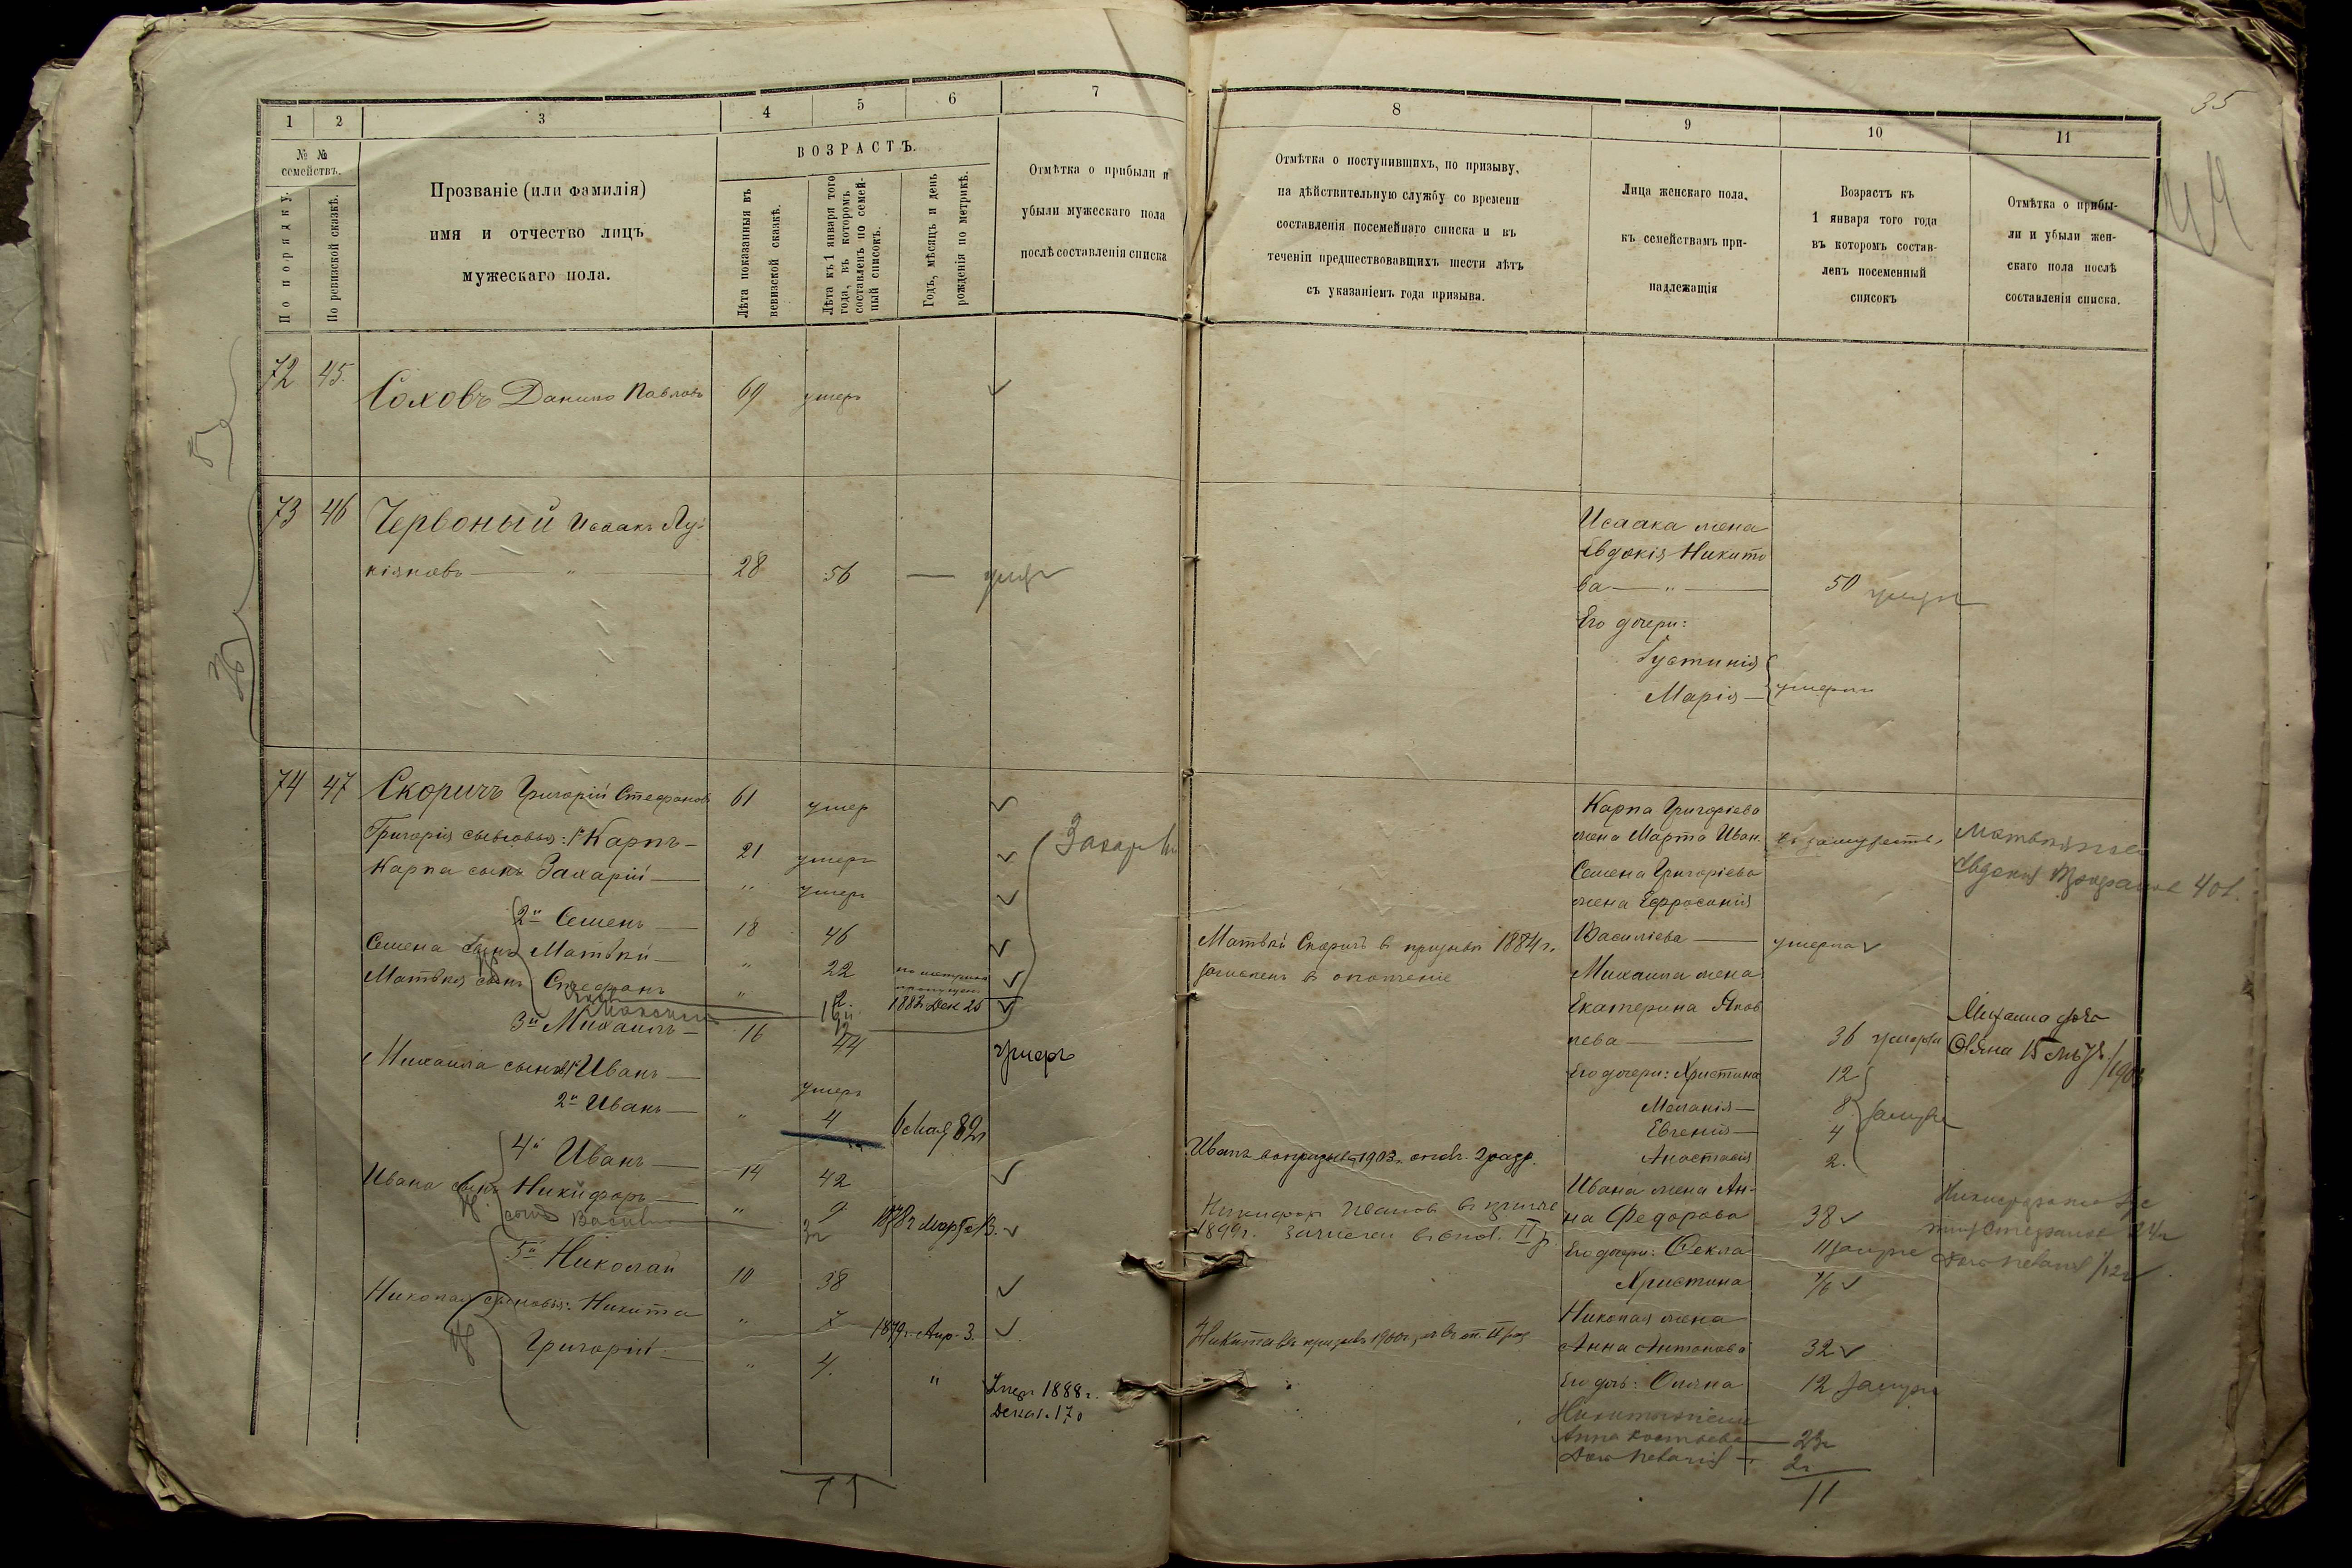 35
44
1 2 3 4 5 6 7
№ № семействъ.
По порядку.
По ревизской сказкѣ.
Прозваніе (или фамилія)
имя и отчество лицъ
мужескаго пола.
ВОЗРАСТЪ.
Лѣта показанныя въ
ревизской сказкѣ.
Лѣта къ 1 января того
года, въ которомъ
составленъ по семей-
ный списокъ.
Годъ, мѣсяцъ и день
рожденія по метрикѣ.
Отмѣтка о прибыли и
убыли мужескаго пола
послѣ составленія списка
72 45. Соховъ Данило Павловъ 69 умеръ
73 46 Червоный Исаакъ Лу-
кіяновъ — " — 28 56 — умеръ
74 47 Скоричъ Григорій Стефановъ 61 умер
Григорія сыновья: 1й Карпъ — 21 умеръ
Карпа сынъ Захарій — " умеръ
2й Семенъ — 18 46
Семена сынъ Матвѣй — " 22
Матвѣя сынъ Стефанъ " 2. 1883 Дек 25
3й Михаилъ — 16 44 умеръ
Михаила сынов. 1й Иванъ — умеръ
2й Иванъ — " 4 6 Мая 82г
4й Иванъ — 14 42
Ивана сынъ Никифоръ — " 9 1878г Марта 13.
сынъ Василій 3г
5й Николай 10 38
Николая сыновья: Никита " 1879г Апр. 3.
Григорій — " 4. " Умер 1888г.
Декаб. 17
11
8 9 10 11
Отмѣтка о поступившихъ, по призыву,
на дѣйствительную службу со времени
составленія посемейнаго списка и въ
теченіи предшествовавшихъ шести лѣтъ
съ указаніемъ года призыва.
Лица женскаго пола,
къ семействамъ при-
надлежащія
Возрастъ къ
1 января того года
въ которомъ состав-
ленъ посеменный
списокъ
Отмѣтка о прибы-
ли и убыли жен-
скаго пола послѣ
составленія списка.
Исаака жена
Евдокія Никито
ва — " — 50 умерла
Его дочери:
Іустинія
Марія — умерли
Карпа Григоріева
жена Марта Иван. въ замужествѣ
Семена Григоріева
жена Ефросинія
Матвѣй Скоричъ в призывѣ 1884 г. Василіева — умерла
зачисленъ в ополченіе Михаила жена
Екатерина Яков
лева — 36 умерла
Его дочери: Христина 12
Меланія — 8
Евгенія — 4
Анастасія 2.
Иванъ въ призывѣ 1903г. опол. 2 разр.
Ивана жена Ан-
Никифоръ Ивановъ в призывѣ на Федорова 38
1899г. зачислен в опол. II р. Его дочери: Фекла 11 замуж
Христина 1/6
Николая жена
Никита въ призывѣ 1900г. Анна Антонова 32
Его дочь: Оляна 12 замуж
Анна 23г
2г
11